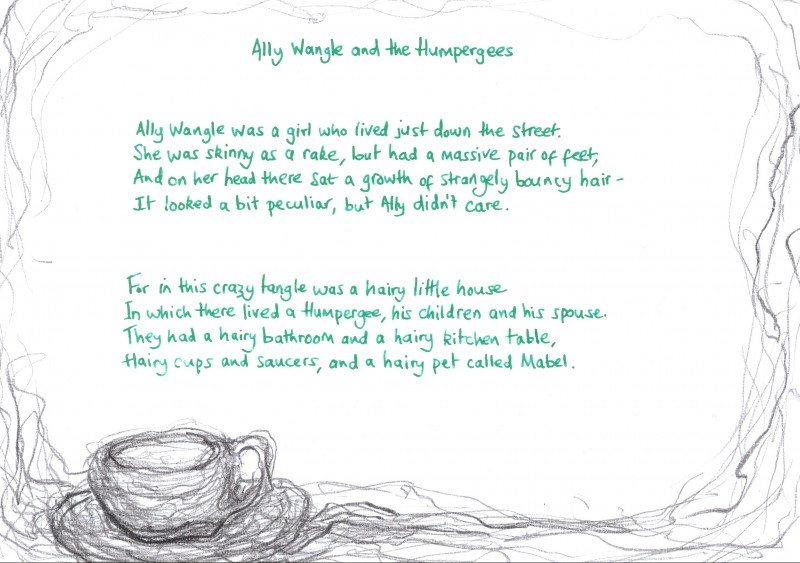 Ally Wangle and the Humpergees
Ally Wangle was a girl who lived just down the street.
She was skinny as a rake, but had a massive pair of feet,
And on her head there sat a growth of strangely bouncy hair -
It looked a bit peculiar, but Ally didn't care.
For in this crazy tangle was a hairy little house
In which there lived a Humpergee, his children and his spouse.
They had a hairy bathroom and a hairy kitchen table,
Hairy cups and saucers, and a hairy pet called Mabel.